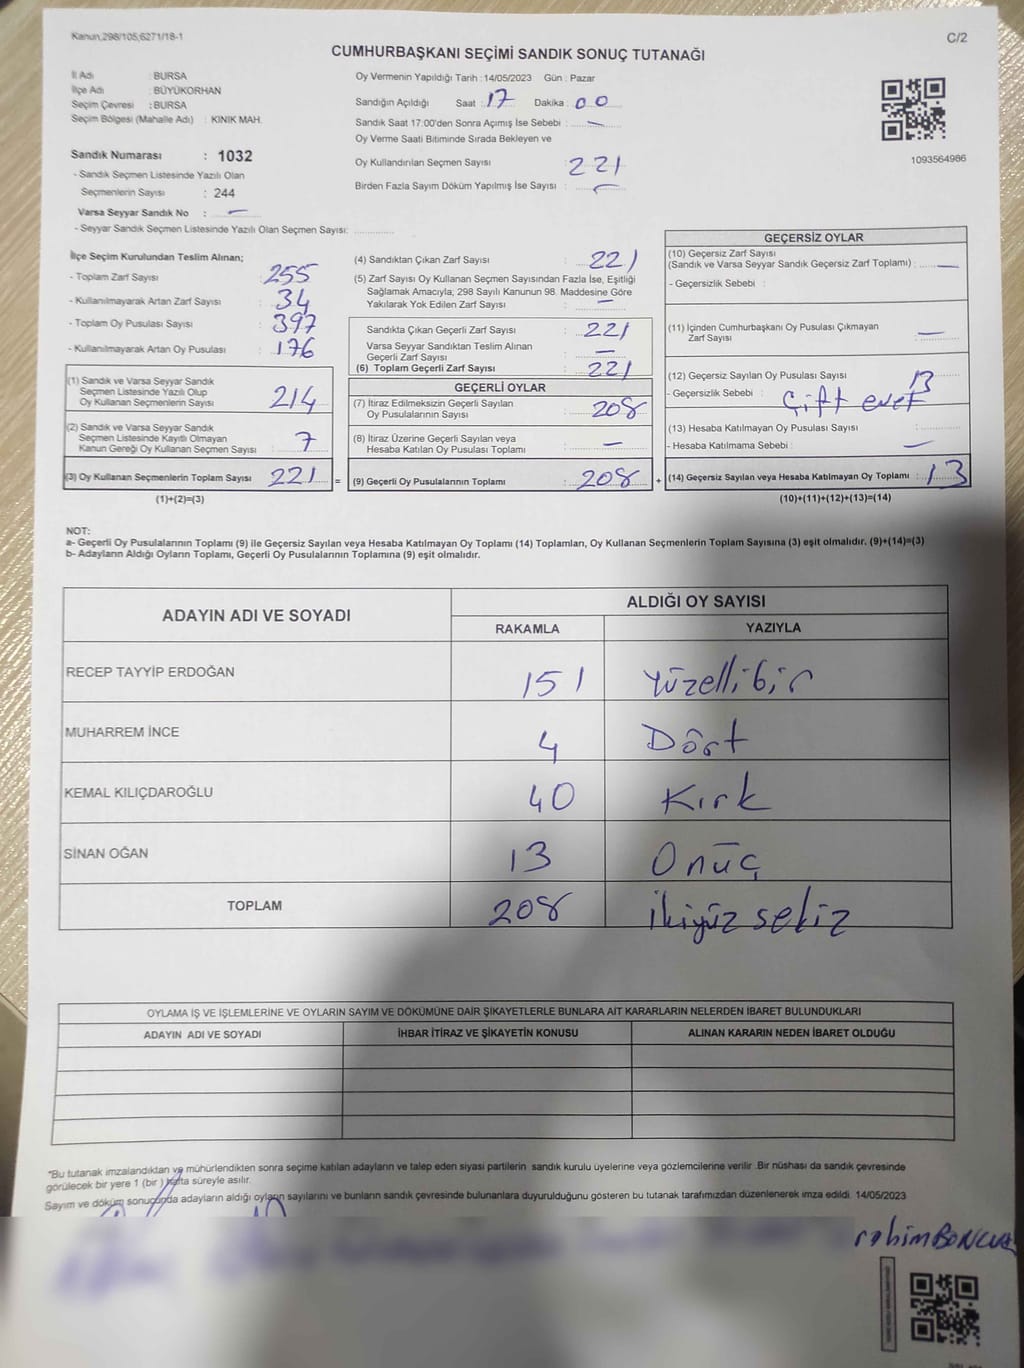 Kanun,298/105,6271/18-1
C/2
CUMHURBAŞKANI SEÇİMİ SANDIK SONUÇ TUTANAĞI
İl Adı : BURSA
İlçe Adı : BÜYÜKORHAN
Seçim Çevresi : BURSA
Seçim Bölgesi (Mahalle Adı) : KINIK MAH.
Sandık Numarası : 1032
- Sandık Seçmen Listesinde Yazılı Olan
Seçmenlerin Sayısı : 244
Varsa Seyyar Sandık No : —
- Seyyar Sandık Seçmen Listesinde Yazılı Olan Seçmen Sayısı: ..............
Oy Vermenin Yapıldığı Tarih : 14/05/2023 Gün : Pazar
Sandığın Açıldığı Saat : 17 Dakika : 00
Sandık Saat 17:00'den Sonra Açımış İse Sebebi : —
Oy Verme Saati Bitiminde Sırada Bekleyen ve
Oy Kullandırılan Seçmen Sayısı : 221
Birden Fazla Sayım Döküm Yapılmış İse Sayısı : —
1093564986
İlçe Seçim Kurulundan Teslim Alınan;
- Toplam Zarf Sayısı : 255
- Kullanılmayarak Artan Zarf Sayısı : 34
- Toplam Oy Pusulası Sayısı : 397
- Kullanılmayarak Artan Oy Pusulası : 176
(1) Sandık ve Varsa Seyyar Sandık
Seçmen Listesinde Yazılı Olup
Oy Kullanan Seçmenlerin Sayısı : 214
(2) Sandık ve Varsa Seyyar Sandık
Seçmen Listesinde Kayıtlı Olmayan
Kanun Gereği Oy Kullanan Seçmen Sayısı : 7
(3) Oy Kullanan Seçmenlerin Toplam Sayısı 221 =
(1)+(2)=(3)
(4) Sandıktan Çıkan Zarf Sayısı : 221
(5) Zarf Sayısı Oy Kullanan Seçmen Sayısından Fazla İse, Eşitliği
Sağlamak Amacıyla, 298 Sayılı Kanunun 98. Maddesine Göre
Yakılarak Yok Edilen Zarf Sayısı : —
Sandıkta Çıkan Geçerli Zarf Sayısı : 221
Varsa Seyyar Sandıktan Teslim Alınan
Geçerli Zarf Sayısı : —
(6) Toplam Geçerli Zarf Sayısı : 221
GEÇERLİ OYLAR
(7) İtiraz Edilmeksizin Geçerli Sayılan
Oy Pusulalarının Sayısı : 208
(8) İtiraz Üzerine Geçerli Sayılan veya
Hesaba Katılan Oy Pusulası Toplamı : —
(9) Geçerli Oy Pusulalarının Toplamı : 208 +
GEÇERSİZ OYLAR
(10) Geçersiz Zarf Sayısı
(Sandık ve Varsa Seyyar Sandık Geçersiz Zarf Toplamı) : —
- Geçersizlik Sebebi :
(11) İçinden Cumhurbaşkanı Oy Pusulası Çıkmayan
Zarf Sayısı : —
(12) Geçersiz Sayılan Oy Pusulası Sayısı : 13
- Geçersizlik Sebebi : Çift evet
(13) Hesaba Katılmayan Oy Pusulası Sayısı : ..............
- Hesaba Katılmama Sebebi : —
(14) Geçersiz Sayılan veya Hesaba Katılmayan Oy Toplamı : 13
(10)+(11)+(12)+(13)=(14)
NOT:
a- Geçerli Oy Pusulalarının Toplamı (9) ile Geçersiz Sayılan veya Hesaba Katılmayan Oy Toplamı (14) Toplamları, Oy Kullanan Seçmenlerin Toplam Sayısına (3) eşit olmalıdır. (9)+(14)=(3)
b- Adayların Aldığı Oyların Toplamı, Geçerli Oy Pusulalarının Toplamına (9) eşit olmalıdır.
ADAYIN ADI VE SOYADI
ALDIĞI OY SAYISI
RAKAMLA YAZIYLA
RECEP TAYYİP ERDOĞAN 151 Yüzellibir
MUHARREM İNCE 4 Dört
KEMAL KILIÇDAROĞLU 40 Kırk
SİNAN OĞAN 13 Onüç
TOPLAM 208 İkiyüz sekiz
OYLAMA İŞ VE İŞLEMLERİNE VE OYLARIN SAYIM VE DÖKÜMÜNE DAİR ŞİKAYETLERLE BUNLARA AİT KARARLARIN NELERDEN İBARET BULUNDUKLARI
ADAYIN ADI VE SOYADI İHBAR İTİRAZ VE ŞİKAYETİN KONUSU ALINAN KARARIN NEDEN İBARET OLDUĞU
*Bu tutanak imzalandıktan ve mühürlendikten sonra seçime katılan adayların ve talep eden siyasi partilerin sandık kurulu üyelerine veya gözlemcilerine verilir .Bir nüshası da sandık çevresinde
görülecek bir yere 1 (bir ) hafta süreyle asılır.
Sayım ve döküm sonucunda adayların aldığı oyların sayılarını ve bunların sandık çevresinde bulunanlara duyurulduğunu gösteren bu tutanak tarafımızdan düzenlenerek imza edildi. 14/05/2023